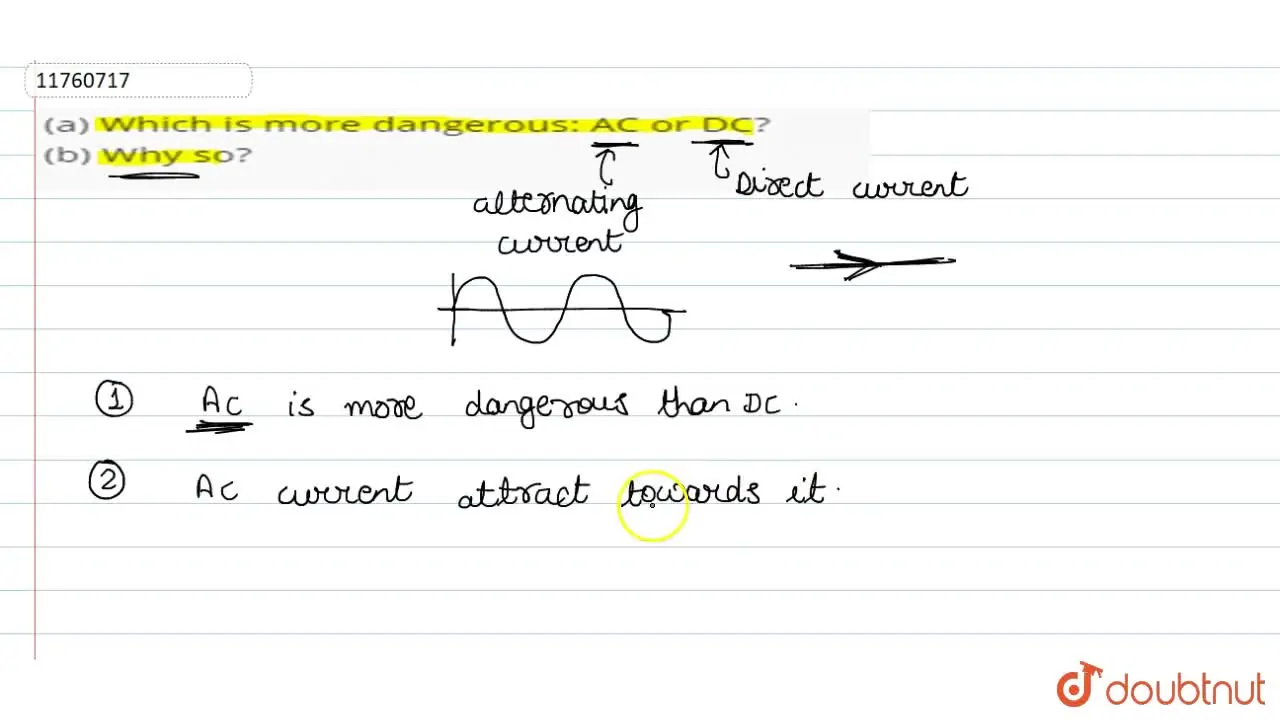 11760717
(a) Which is more dangerous: AC or DC?
(b) Why so?
Direct current
alternating
current
1 AC is more dangerous than DC.
2 AC current attract towards it.
doubtnut